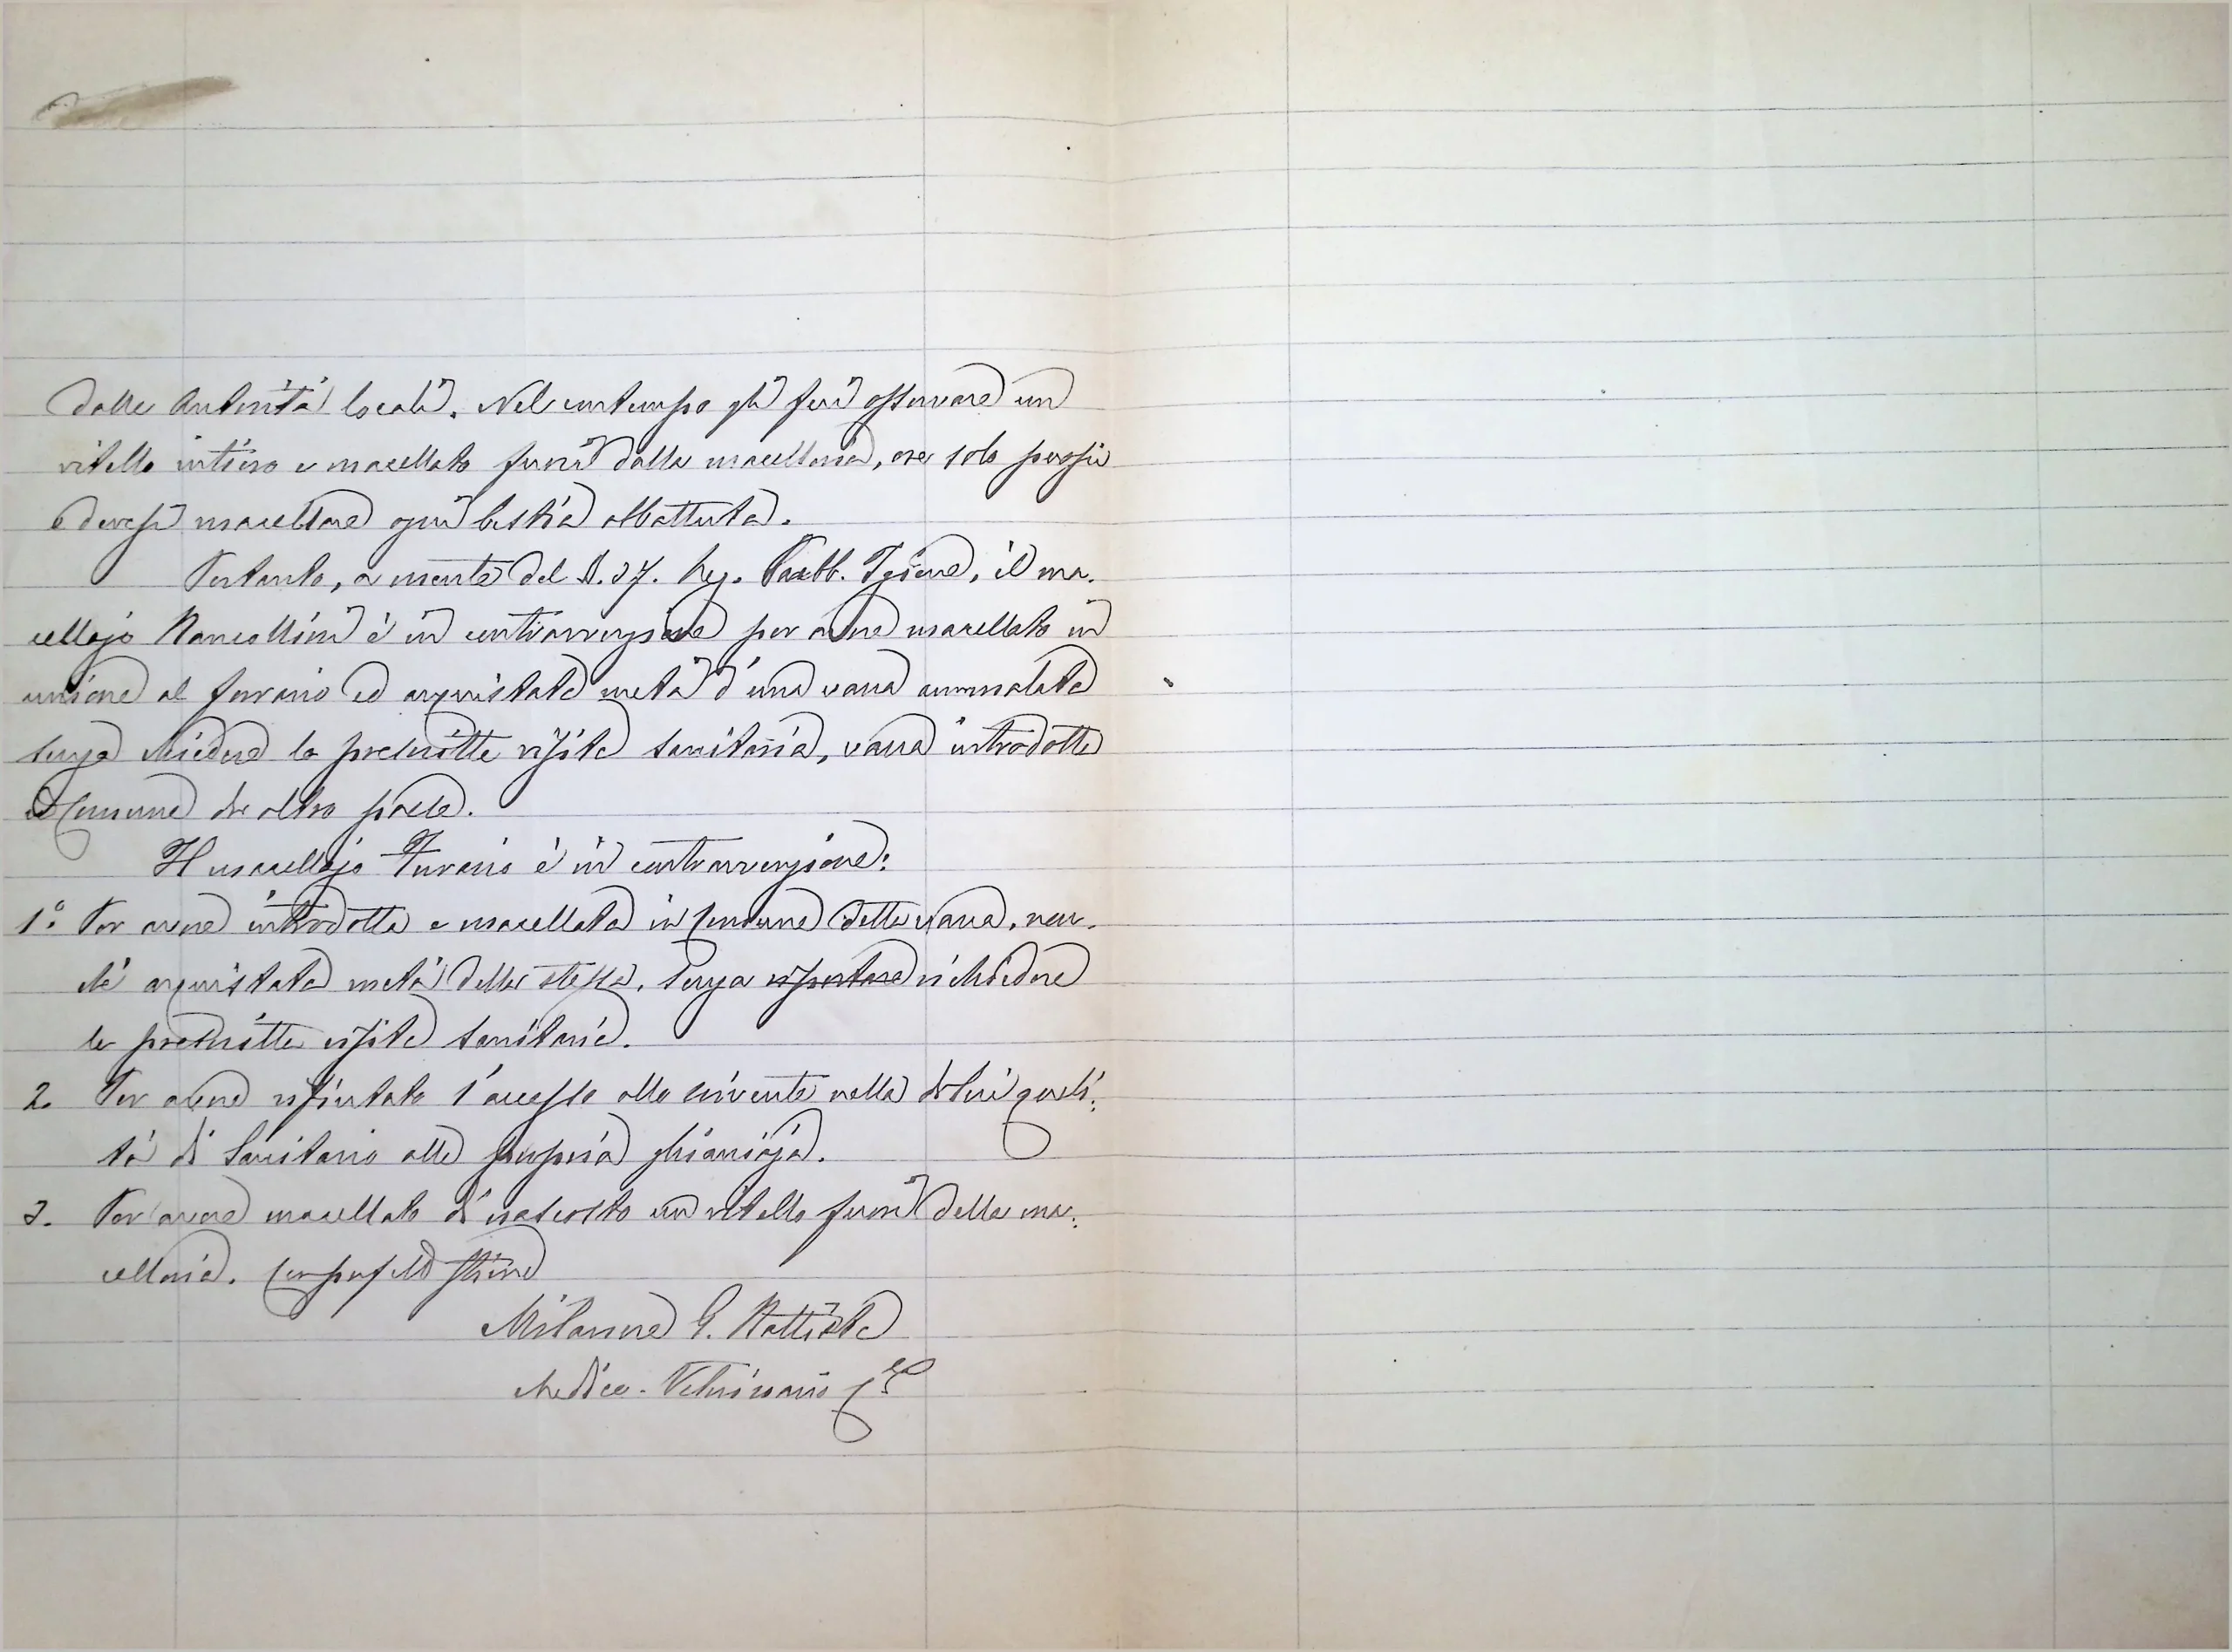 dalle Autorità locali. Nel contempo gli feci osservare un
vitello intiero e macellato fuori dalla macelleria, ove solo puossi
e devesi macellare ogni bestia abbattuta.
Pertanto, a mente del A. 27. Reg. Pubb. Igiene, il ma-
cellajo è in contravvenzione per avere macellato in
unione al Furario ed acquistata metà d'una vacca ammalata
senza chiedere la prescritta visita sanitaria, vacca introdotta
Comune da altro paese.
Il macellajo Furario è in contravvenzione:
1º. Per avere introdotta e macellata in Comune detta vacca, non-
chè acquistata metà della stessa, senza richiedere
la prescritta visita sanitaria.
2. Per avere rifiutato l'accesso allo scrivente nella di lui quali-
tà di Sanitario alla propria ghiacciaja.
3. Per avere macellato di nascosto un vitello fuori della ma-
celleria. Con perfetta stima
Milanone G. Battista
Medico-Veterinario